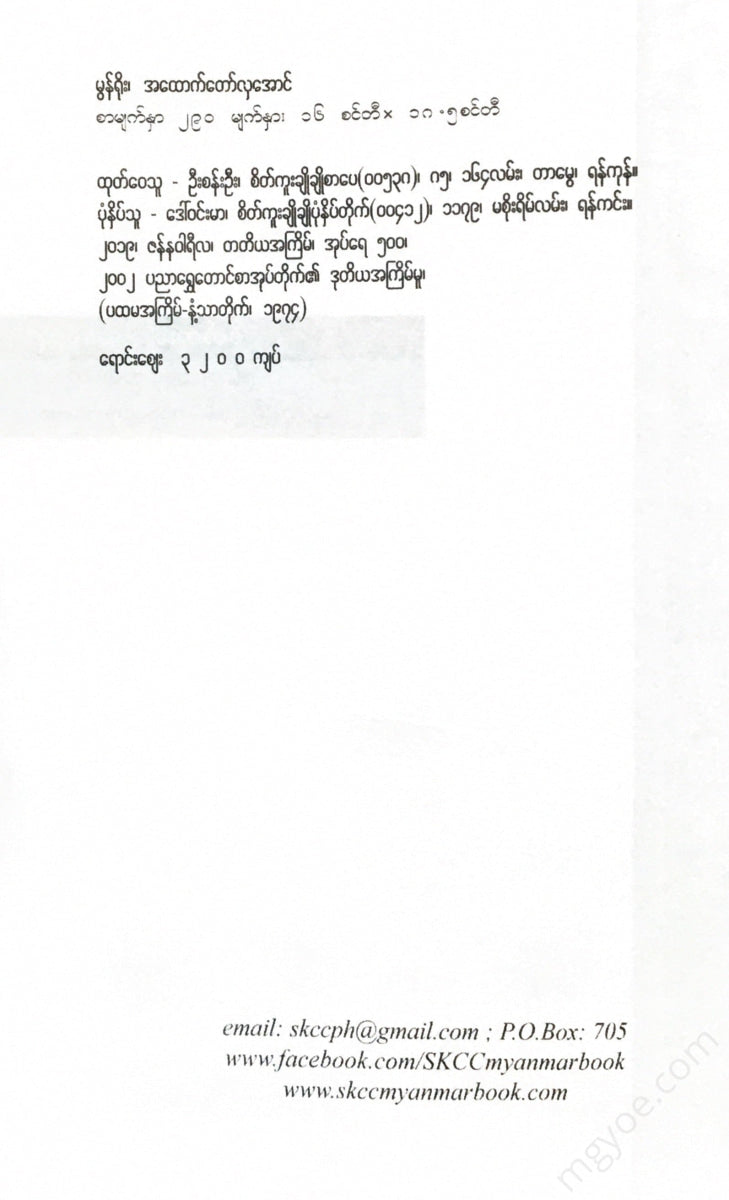 မွန်ရိုး၊ အထောက်တော်လှအောင်
စာမျက်နှာ ၂၉၀ မျက်နှား ၁၆ စင်တီ× ၁၈.၅စင်တီ
ထုတ်ဝေသူ - ဦးစန်းဦး၊ စိတ်ကူးချိုချိုစာပေ(၀၀၅၃၈)၊ ၈၅၊ ၁၆၄လမ်း၊ တာမွေ၊ ရန်ကုန်။
ပုံနှိပ်သူ - ဒေါ်ဝင်းမာ၊ စိတ်ကူးချိုချိုပုံနှိပ်တိုက်(၀၀၄၁၂)၊ ၁၁၇၉၊ မစိုးရိမ်လမ်း၊ ရန်ကင်း။
၂၀၁၉၊ ဇန်နဝါရီလ၊ တတိယအကြိမ်၊ အုပ်ရေ ၅၀၀၊
၂၀၀၂ ပညာရွှေတောင်စာအုပ်တိုက်၏ ဒုတိယအကြိမ်မူ၊
(ပထမအကြိမ်-နံ့သာတိုက်၊ ၁၉၇၄)
ရောင်းဈေး ၃ ၂ ၀ ၀ ကျပ်
email: skccph@gmail.com ; P.O.Box: 705
www.facebook.com/SKCCmyanmarbook
www.skccmyanmarbook.com
mgyoe.com